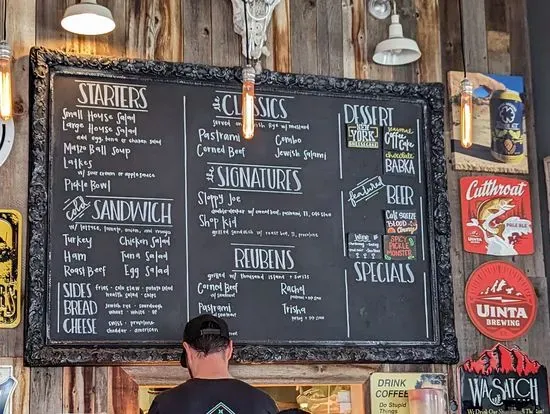 STARTERS
Small House Salad
Large House Salad
add egg, tuna or chicken salad
Matzo Ball Soup
Latkes
w/ sour cream or apple sauce
Pickle Bowl
cold SANDWICH
w/ lettuce, tomato, onion, and mayo
Turkey Chicken Salad
Ham Tuna Salad
Roast Beef Egg Salad
SIDES fries · cole slaw · potato salad
health salad · chips
BREAD
wheat · white
CHEESE swiss · provolone
cheddar · american
the CLASSICS
served on Rye w/ mustard
Pastrami Combo
Corned Beef Jewish Salami
the SIGNATURES
Sloppy Joe
Shop Kid
REUBENS
grilled w/ thousand island + swiss
Corned Beef Rachel
w/ sauerkraut
Pastrami Trisha
DESSERT
NEW YORK
CHEESECAKE
Coffee Cake
chocolate
BABKA
featured BEER
BLOOD
Wine
SPICY PICKLE MONSTER
SPECIALS
Cutthroat
PALE ALE
UINTA
UINTA
BREWING
WASATCH
DRINK
COFFEE
Do Stupid
Things